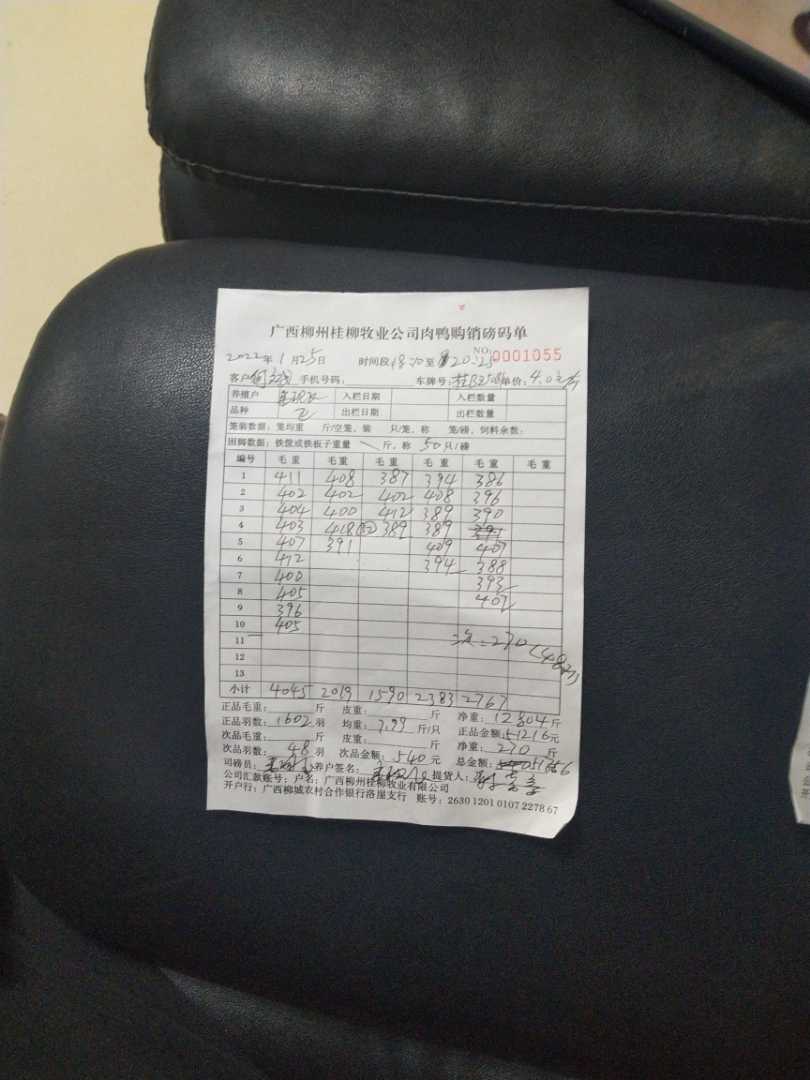 广西柳州桂柳牧业公司肉鸭购销磅码单
2022年1月25日 时间段 至 20:25 NO:0001055
客户 手机号码: 车牌号: 单价:4.0元/斤
养殖户 入栏日期 入栏数量
品种 出栏日期 出栏数量
笼装数据:笼均重 斤/空笼、装 只/笼、称 笼/磅、饲料余数:
困脚数据:铁筐或铁板子重量 斤、称 50只/磅
编号 毛重 毛重 毛重 毛重 毛重 毛重
1 411 408 387 394 386
2 402 402 402 408 396
3 404 400 412 389 390
4 403 418 389 389 391
5 407 391 409 407
6 412 394 388
7 400 393
8 405 407
9 396
10 405
11 次:270(48只)
12
13
小计 4045 2019 1590 2383 2767
正品毛重: 斤 皮重: 斤 净重:12804斤
正品羽数:1602羽 均重:7.99斤/只 正品金额:51216元
次品毛重: 斤 皮重: 斤 净重:270斤
次品羽数:48羽 次品金额:540元 总金额:51756
司磅员: 养户签名: 提货人:
公司汇款账号:户名:广西柳州桂柳牧业有限公司
开户行:广西柳城农村合作银行洛崖支行 账号:2630 1201 0107 2278 67